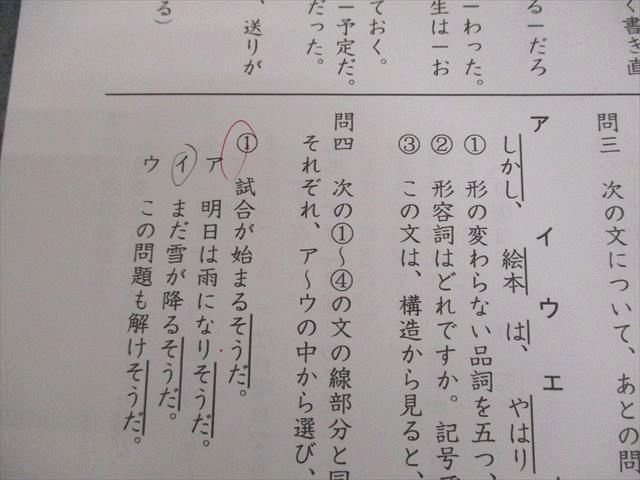 く書き直
る―だろ
―わった。
生は―お
ておく。
―予定だ。
だった。
、送りが
る）
問三　次の文について、あとの問
ア　イ　ウ　エ
しかし、絵本は、やはり
①　形の変わらない品詞を五つ、
②　形容詞はどれですか。記号で
③　この文は、構造から見ると、
問四　次の①～④の文の線部分と同
それぞれ、ア～ウの中から選び、
①　試合が始まるそうだ。
ア　明日は雨になりそうだ。
イ　まだ雪が降るそうだ。
ウ　この問題も解けそうだ。